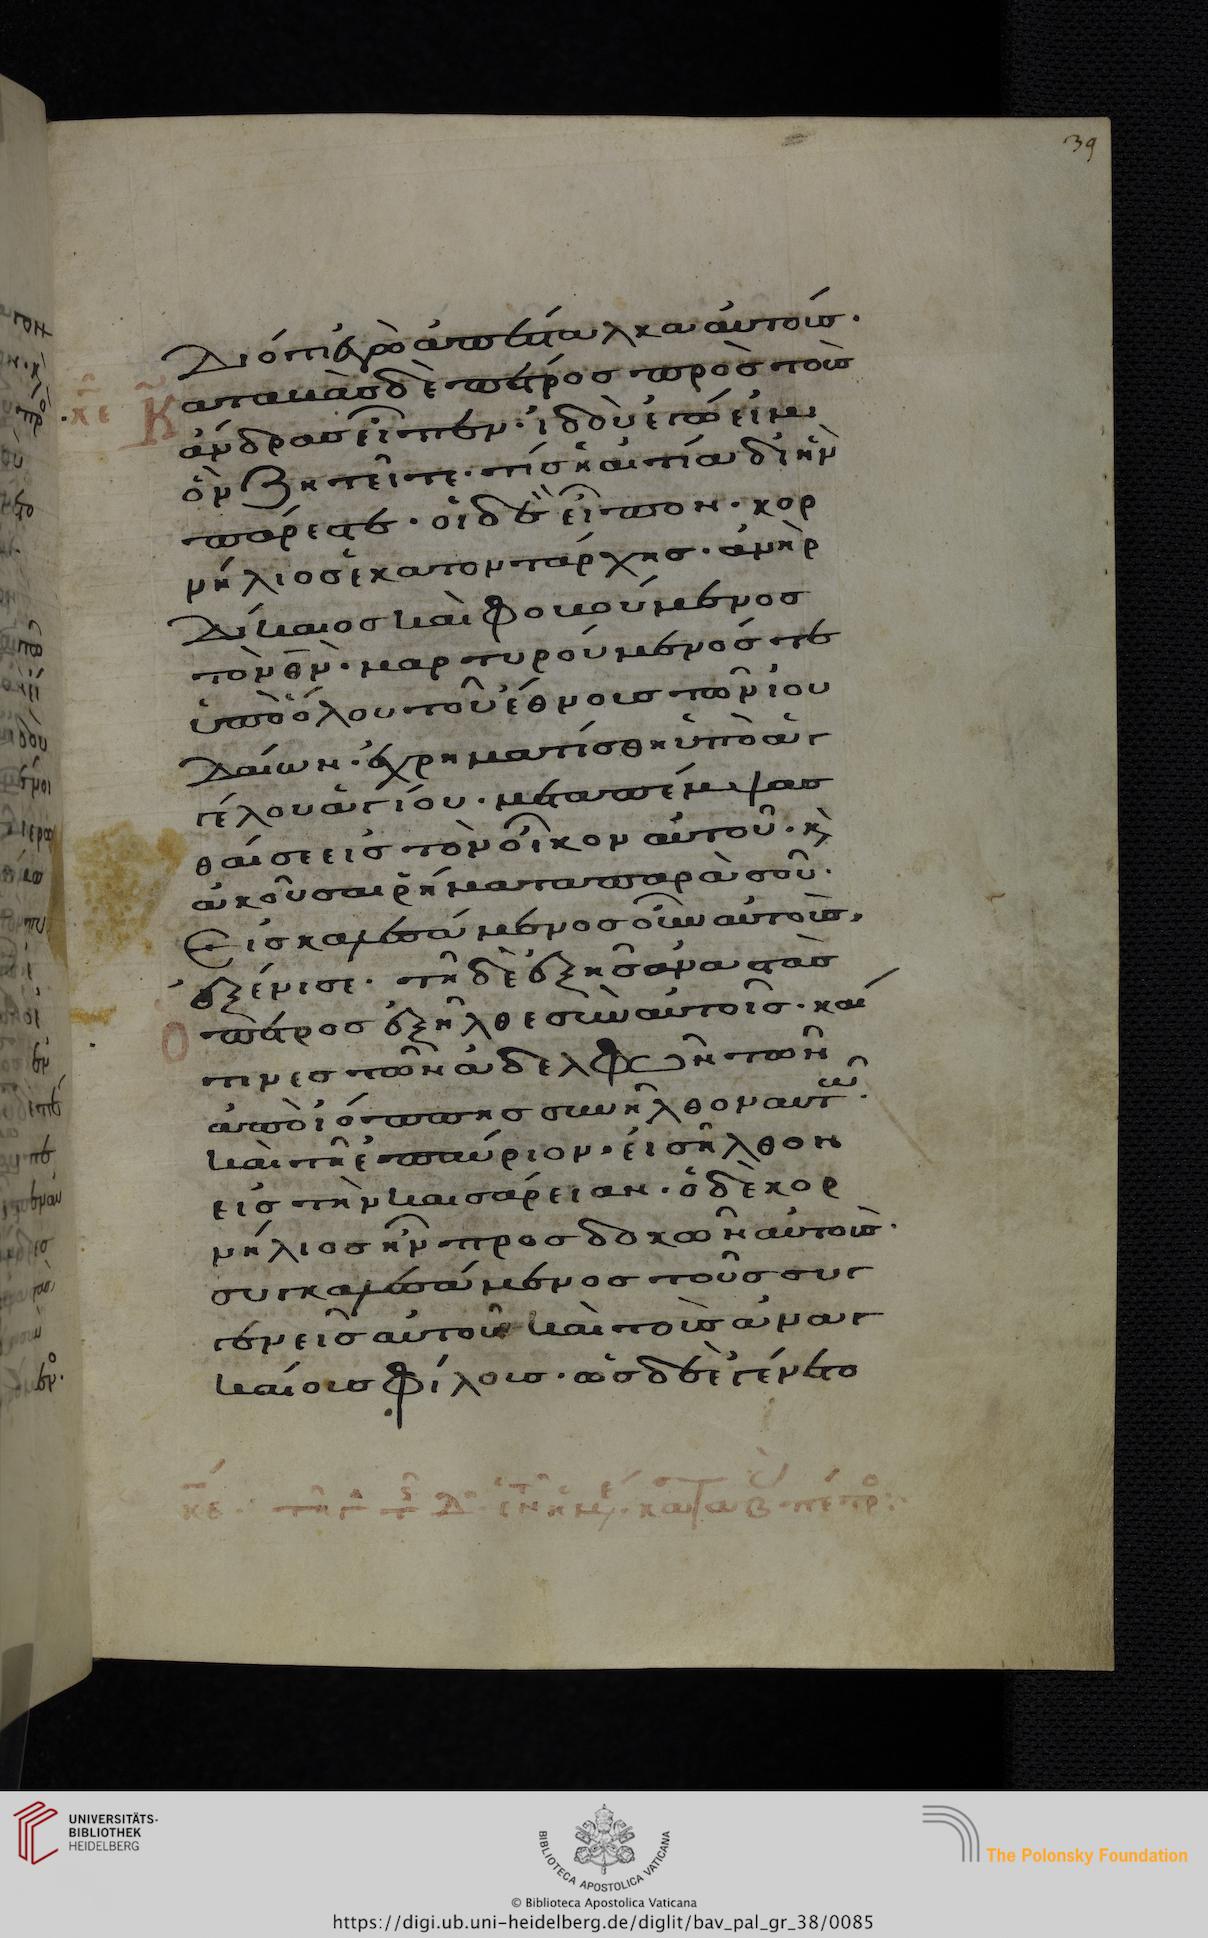 39
Διότι ἐγὼ ἀπέσταλκα αὐτούς.
κε Καταβὰς δὲ πέτρος πρὸς τοὺς
ἄνδρας εἶπεν· ἰδοὺ ἐγώ εἰμι
ὃν ζητεῖτε· τίς ἡ αἰτία δι ἣν
πάρεστε· οἱ δὲ εἶπον· κορ
νήλιος ἑκατοντάρχης· ἀνὴρ
δίκαιος καὶ φοβούμενος
τὸν θν· μαρτυρούμενός τε
ὑπὸ ὅλου τοῦ ἔθνους τῶν ἰου
δαίων· ἐχρηματίσθη ὑπὸ ἀγ
γέλου ἁγίου· μεταπέμψασ
θαί σε εἰς τὸν οἶκον αὐτοῦ· κ
ἀκοῦσαι ῥήματα παρὰ σοῦ·
Εἰσκαλεσάμενος οὖν αὐτοὺς,
ἐξένισε· τῇ δὲ ἑξῆς ἀναστὰς
Ο πέτρος ἐξῆλθε σὺν αὐτοῖς· καί
τινες τῶν ἀδελφῶν τῶν
ἀπὸ ἰόππης συνῆλθον αυτ·
καὶ τῇ ἐπαύριον· εἰσῆλθον
εἰς τὴν καισάρειαν· ὁ δὲ κορ
νήλιος ἦν προσδοκῶν αὐτούς·
συγκαλεσάμενος τοὺς συγ
γενεῖς αὐτοῦ καὶ τοὺς ἀναγ
καίους φίλους· ὡς δὲ ἐγένετο
UNIVERSITÄTS-
BIBLIOTHEK
HEIDELBERG
BIBLIOTECA APOSTOLICA VATICANA
The Polonsky Foundation
© Biblioteca Apostolica Vaticana
https://digi.ub.uni-heidelberg.de/diglit/bav_pal_gr_38/0085